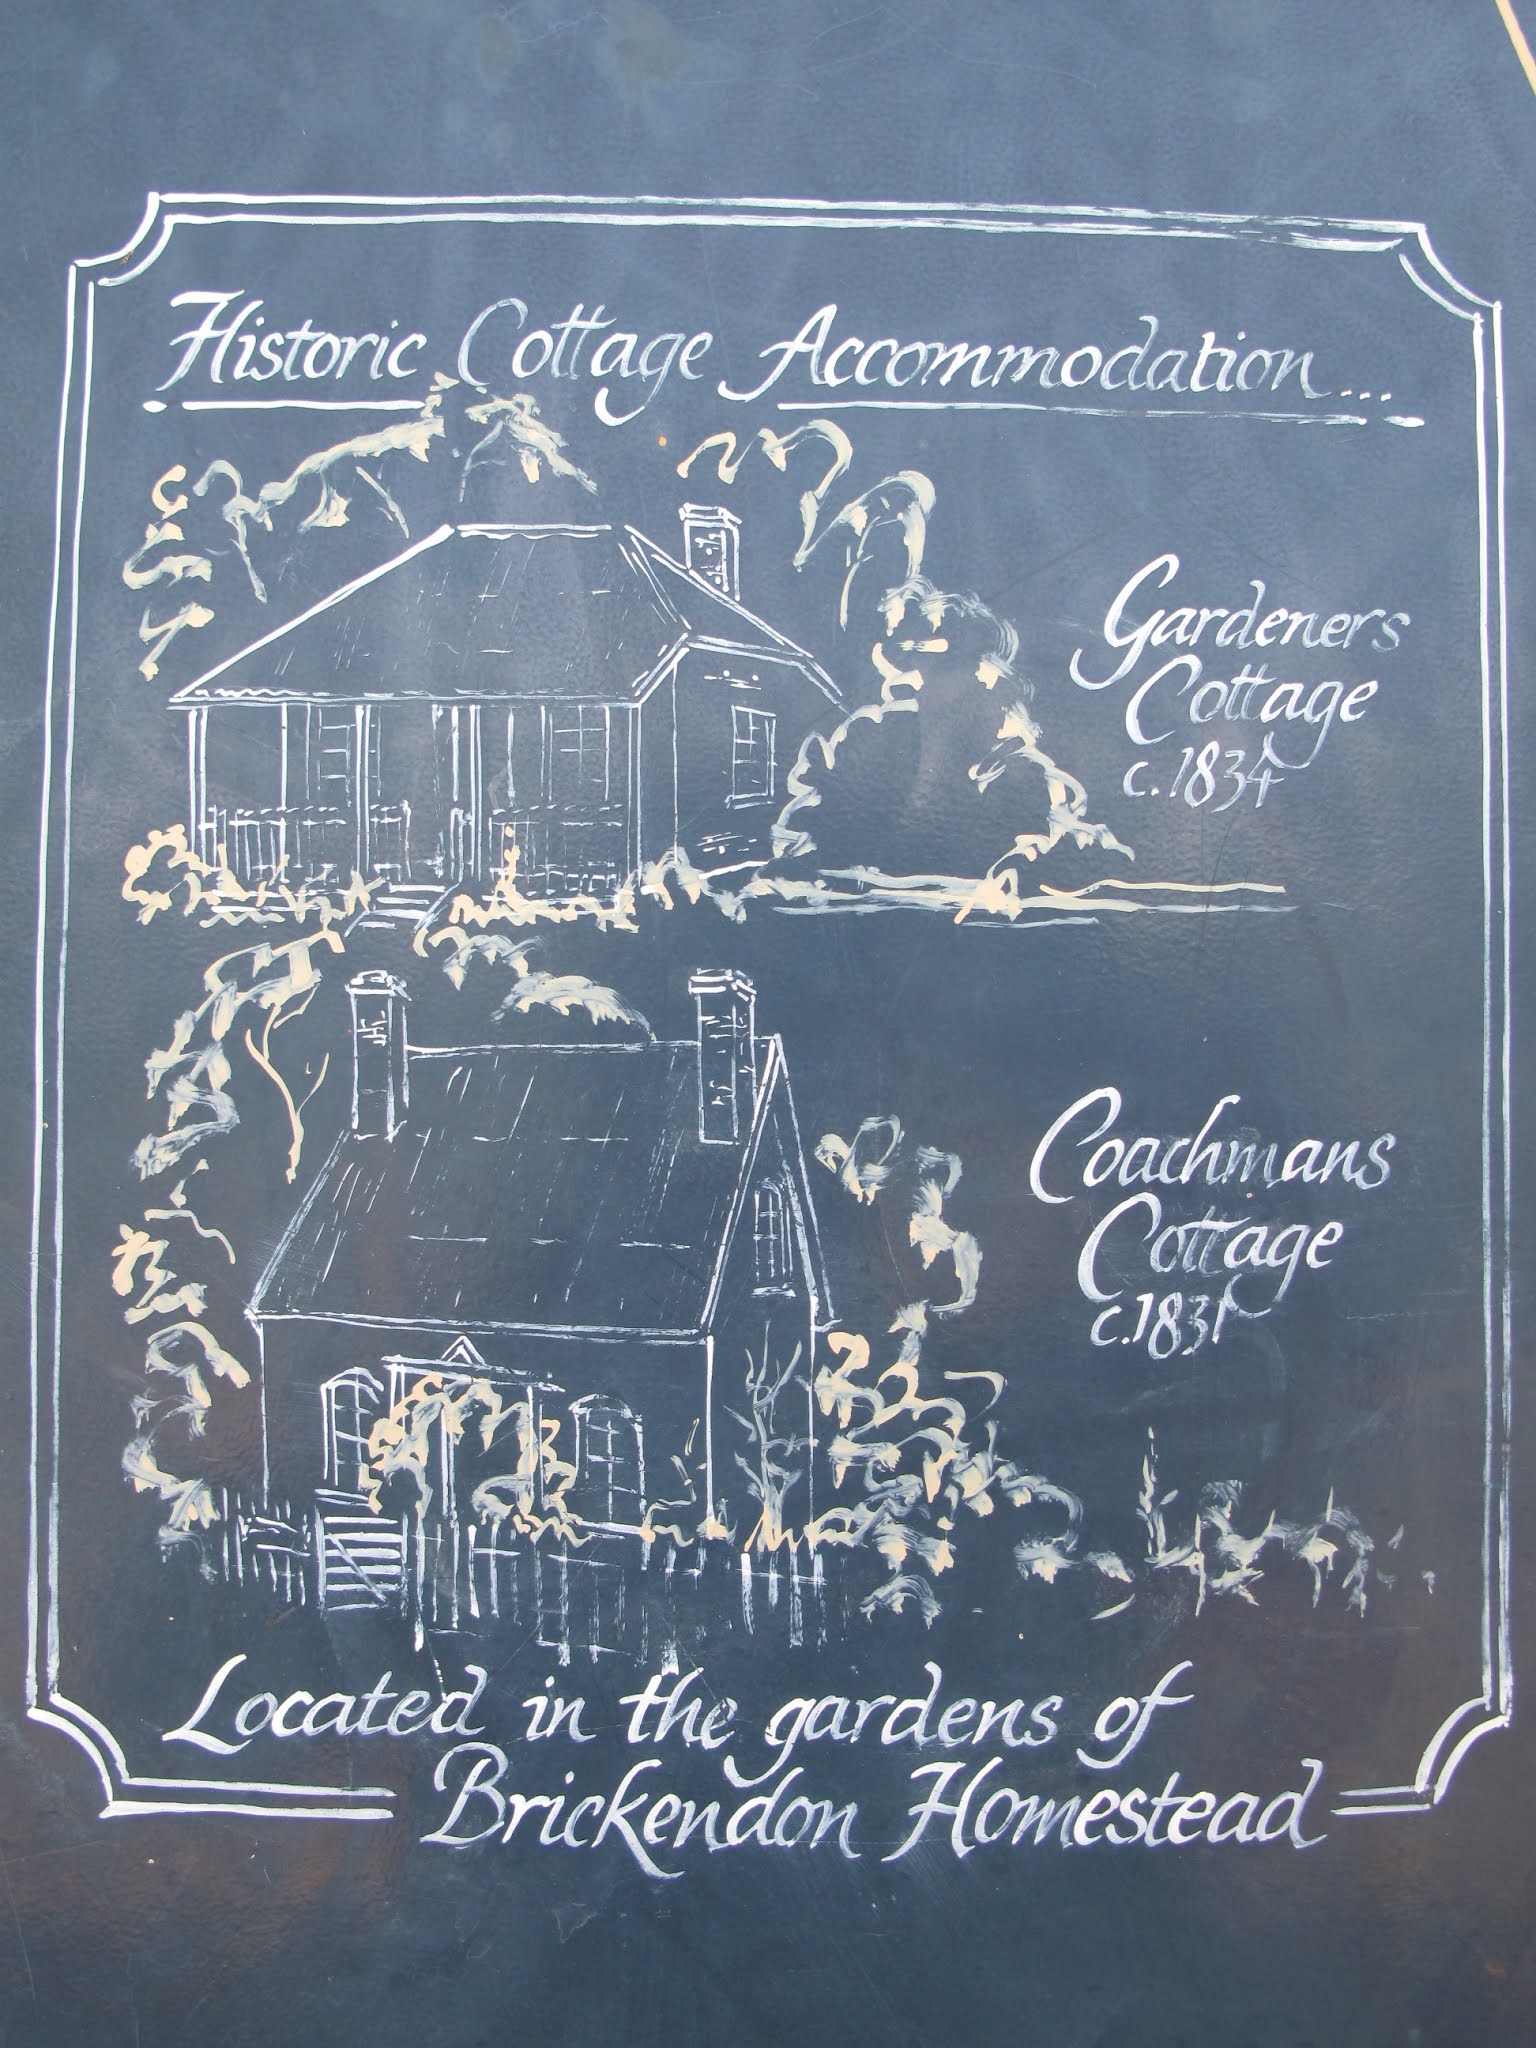 Historic Cottage Accommodation...
Gardeners
Cottage
c.1834
Coachmans
Cottage
c.1831
Located in the gardens of
Brickendon Homestead